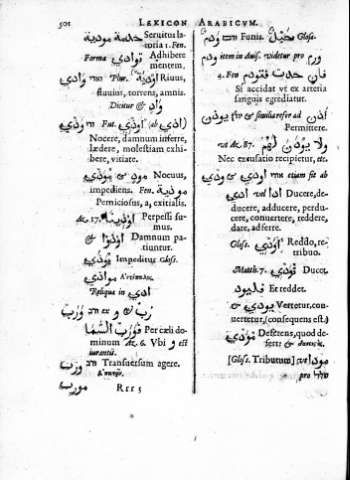 501 LEXICON ARABICUM.
خدمة مودية Servitus latoria 1. Fen.
Forma توادي Adhibere
mentem.
وادي Plur. اودية Rivus,
fluvius, torrens, amnis.
Dicitur & واد
وذي Fut. اوذي (ab اذي)
Nocere, damnum inferre,
lædere, molestiam exhibere, vitiare.
موذ & موذي Nocuus,
impediens. Fen. موذية
Perniciosus, a, exitialis.
Act. 27. Perpessi sumus.
& اوذوا Damnum patiuntur.
Impeditur Gloss.
موادي
Reliqua in ادي
ورب ex & رب
فورب السما Per cæli dominum Act. 6. Ubi و est
iurantis.
ورب Transversum agere.
مورب Rrr 5
ودم Funis. Gloss.
ودم item in Avis. videtur pro ورم
4. Fen فان حدث فتودم
Si accidat ut ex arteria
sanguis egrediatur.
يوذن & similia refer ad اذن
Permittere.
Act. 87. ولا يوذن لهم
Nec excusatio recipietur, etc.
ودي & اودي etiam sit ab
ادا vel ادي Ducere, deducere, adducere, perducere, convertere, reddere,
dare, adferre.
Gloss. اودي Reddo, retribuo.
Matth. 7. تودي Ducet.
فليود Et reddet.
يودي & Vertetur, convertetur, (consequens est.)
مودي Deferens, quod deferre & ducere.
[Gloss. Tributum] مودا
pro